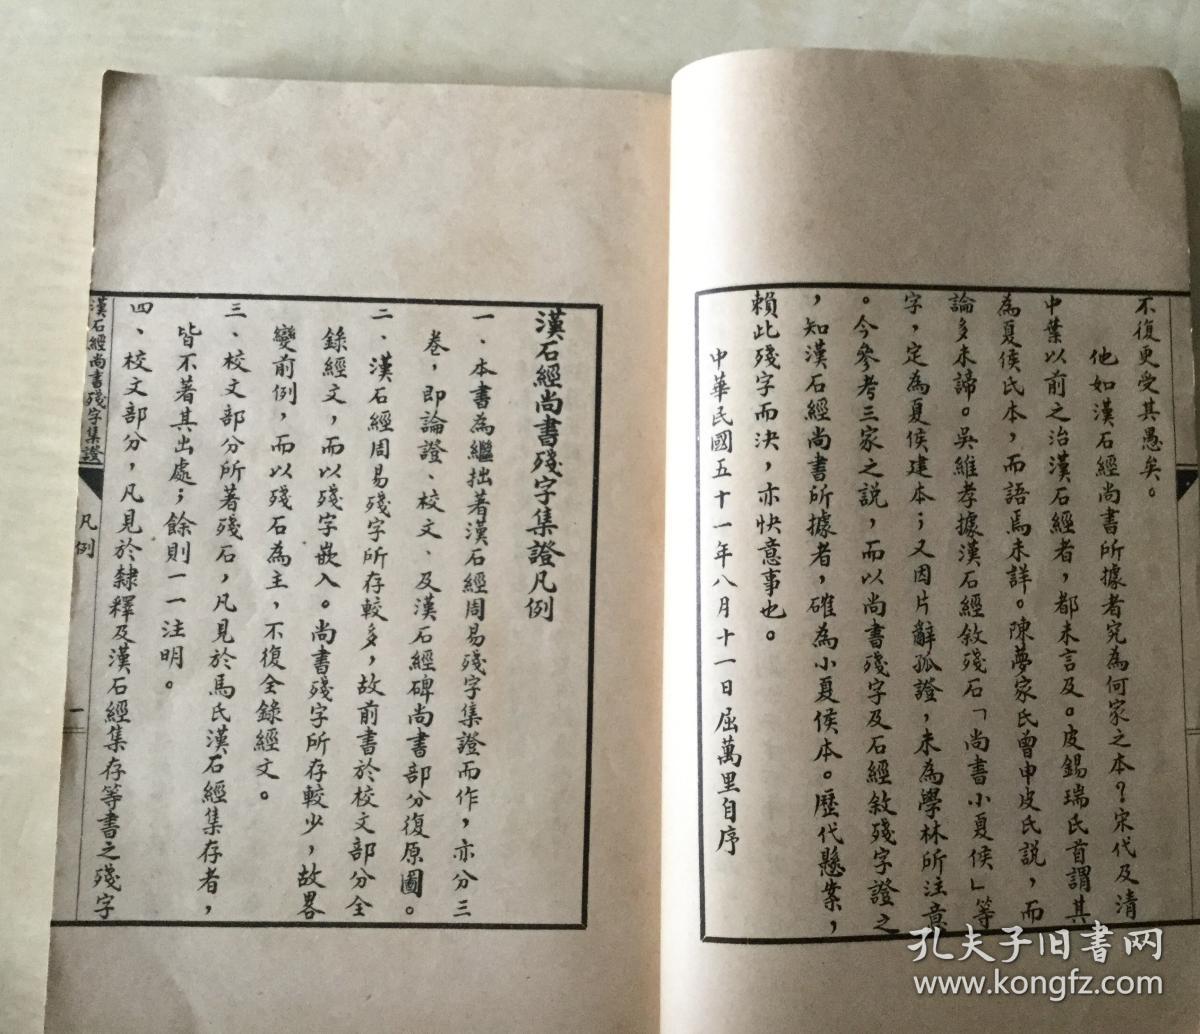 不復更受其愚矣。
他如漢石經尚書所據者究為何家之本？宋代及清
中葉以前之治漢石經者，都未言及。皮錫瑞氏首謂其
為夏侯氏本，而語焉未詳。陳夢家氏曾申皮氏說，而
論多未諦。吳維孝據漢石經敘殘石「尚書小夏侯」等
字，定為夏侯建本；又因片辭孤證，未為學林所注意
。今參考三家之說，而以尚書殘字及石經敘殘字證之
，知漢石經尚書所據者，確為小夏侯本。歷代懸案，
賴此殘字而決，亦快意事也。
中華民國五十一年八月十一日屈萬里自序
漢石經尚書殘字集證凡例
一、本書為繼拙著漢石經周易殘字集證而作，亦分三
卷，即論證、校文、及漢石經碑尚書部分復原圖。
二、漢石經周易殘字所存較多，故前書於校文部分全
錄經文，而以殘字嵌入。尚書殘字所存較少，故畧
變前例，而以殘石為主，不復全錄經文。
三、校文部分所著殘石，凡見於馬氏漢石經集存者，
皆不著其出處；餘則一一注明。
四、校文部分，凡見於隸釋及漢石經集存等書之殘字
漢石經尚書殘字集證
凡例
一
孔夫子旧書网
www.kongfz.com